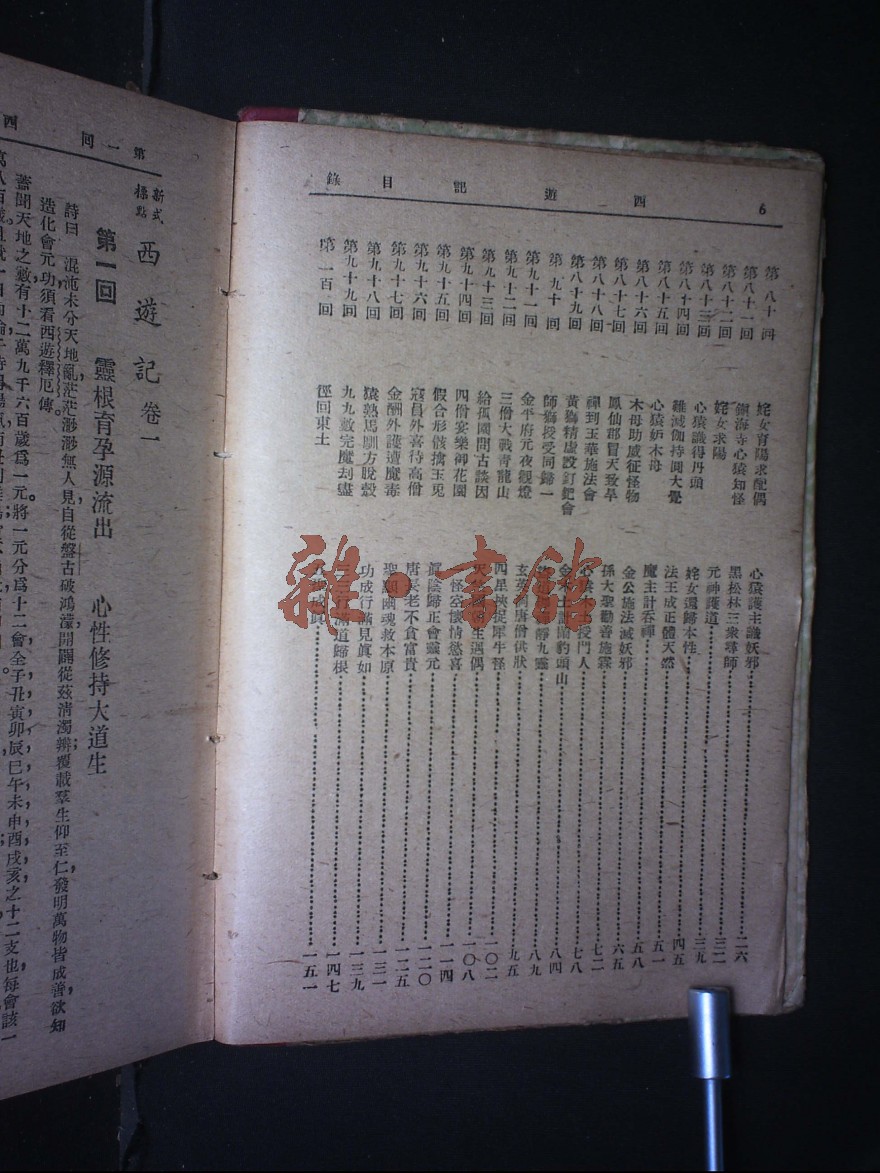 6 西遊記目錄
第八十回 姹女育陽求配偶 心猿護主識妖邪 二六
第八十一回 鎮海寺心猿知怪 黑松林三衆尋師 三二
第八十二回 姹女求陽 元神護道 三九
第八十三回 心猿識得丹頭 姹女還歸本性 四五
第八十四回 難滅伽持圓大覺 法王成正體天然 五一
第八十五回 心猿妒木母 魔主計吞禪 五八
第八十六回 木母助威征怪物 金公施法滅妖邪 六五
第八十七回 鳳仙郡冒天致旱 孫大聖勸善施霖 七二
第八十八回 禪到玉華施法會 心猿木土授門人 七八
第八十九回 黃獅精虛設釘鈀會 金木土計鬧豹頭山 八四
第九十回 師獅授受同歸一 靜九靈 八九
第九十一回 金平府元夜觀燈 玄英洞唐僧供狀 九五
第九十二回 三僧大戰青龍山 四星挾捉犀牛怪 一〇二
第九十三回 給孤園問古談因 天竺國朝王遇偶 一〇八
第九十四回 四僧宴樂御花園 一怪空懷情慾喜 一一四
第九十五回 假合形骸擒玉兎 眞陰歸正會靈元 一二〇
第九十六回 寇員外喜待高僧 唐長老不貪富貴 一二五
第九十七回 金酬外護遭魔毒 聖顯幽魂救本原 一三一
第九十八回 猿熟馬馴方脫殼 功成行滿見眞如 一三九
第九十九回 九九數完魔刦盡 三三行滿道歸根 一四七
第一百回 徑回東土 五聖成眞 一五一
雜·書館
第一回 西
新式標點 西遊記 卷一
第一回 靈根育孕源流出 心性修持大道生
詩曰 混沌未分天地亂,茫茫渺渺無人見,自從盤古破鴻濛,開闢從茲淸濁辨;覆載羣生仰至仁,發明萬物皆成善,欲知
造化會元功,須看西遊釋厄傳。
蓋聞天地之數,有十二萬九千六百歲爲一元。將一元分爲十二會,全子,丑,寅,卯,辰,巳,午,未,申,酉,戌,亥之十二支也;每會該一
萬八百歲。